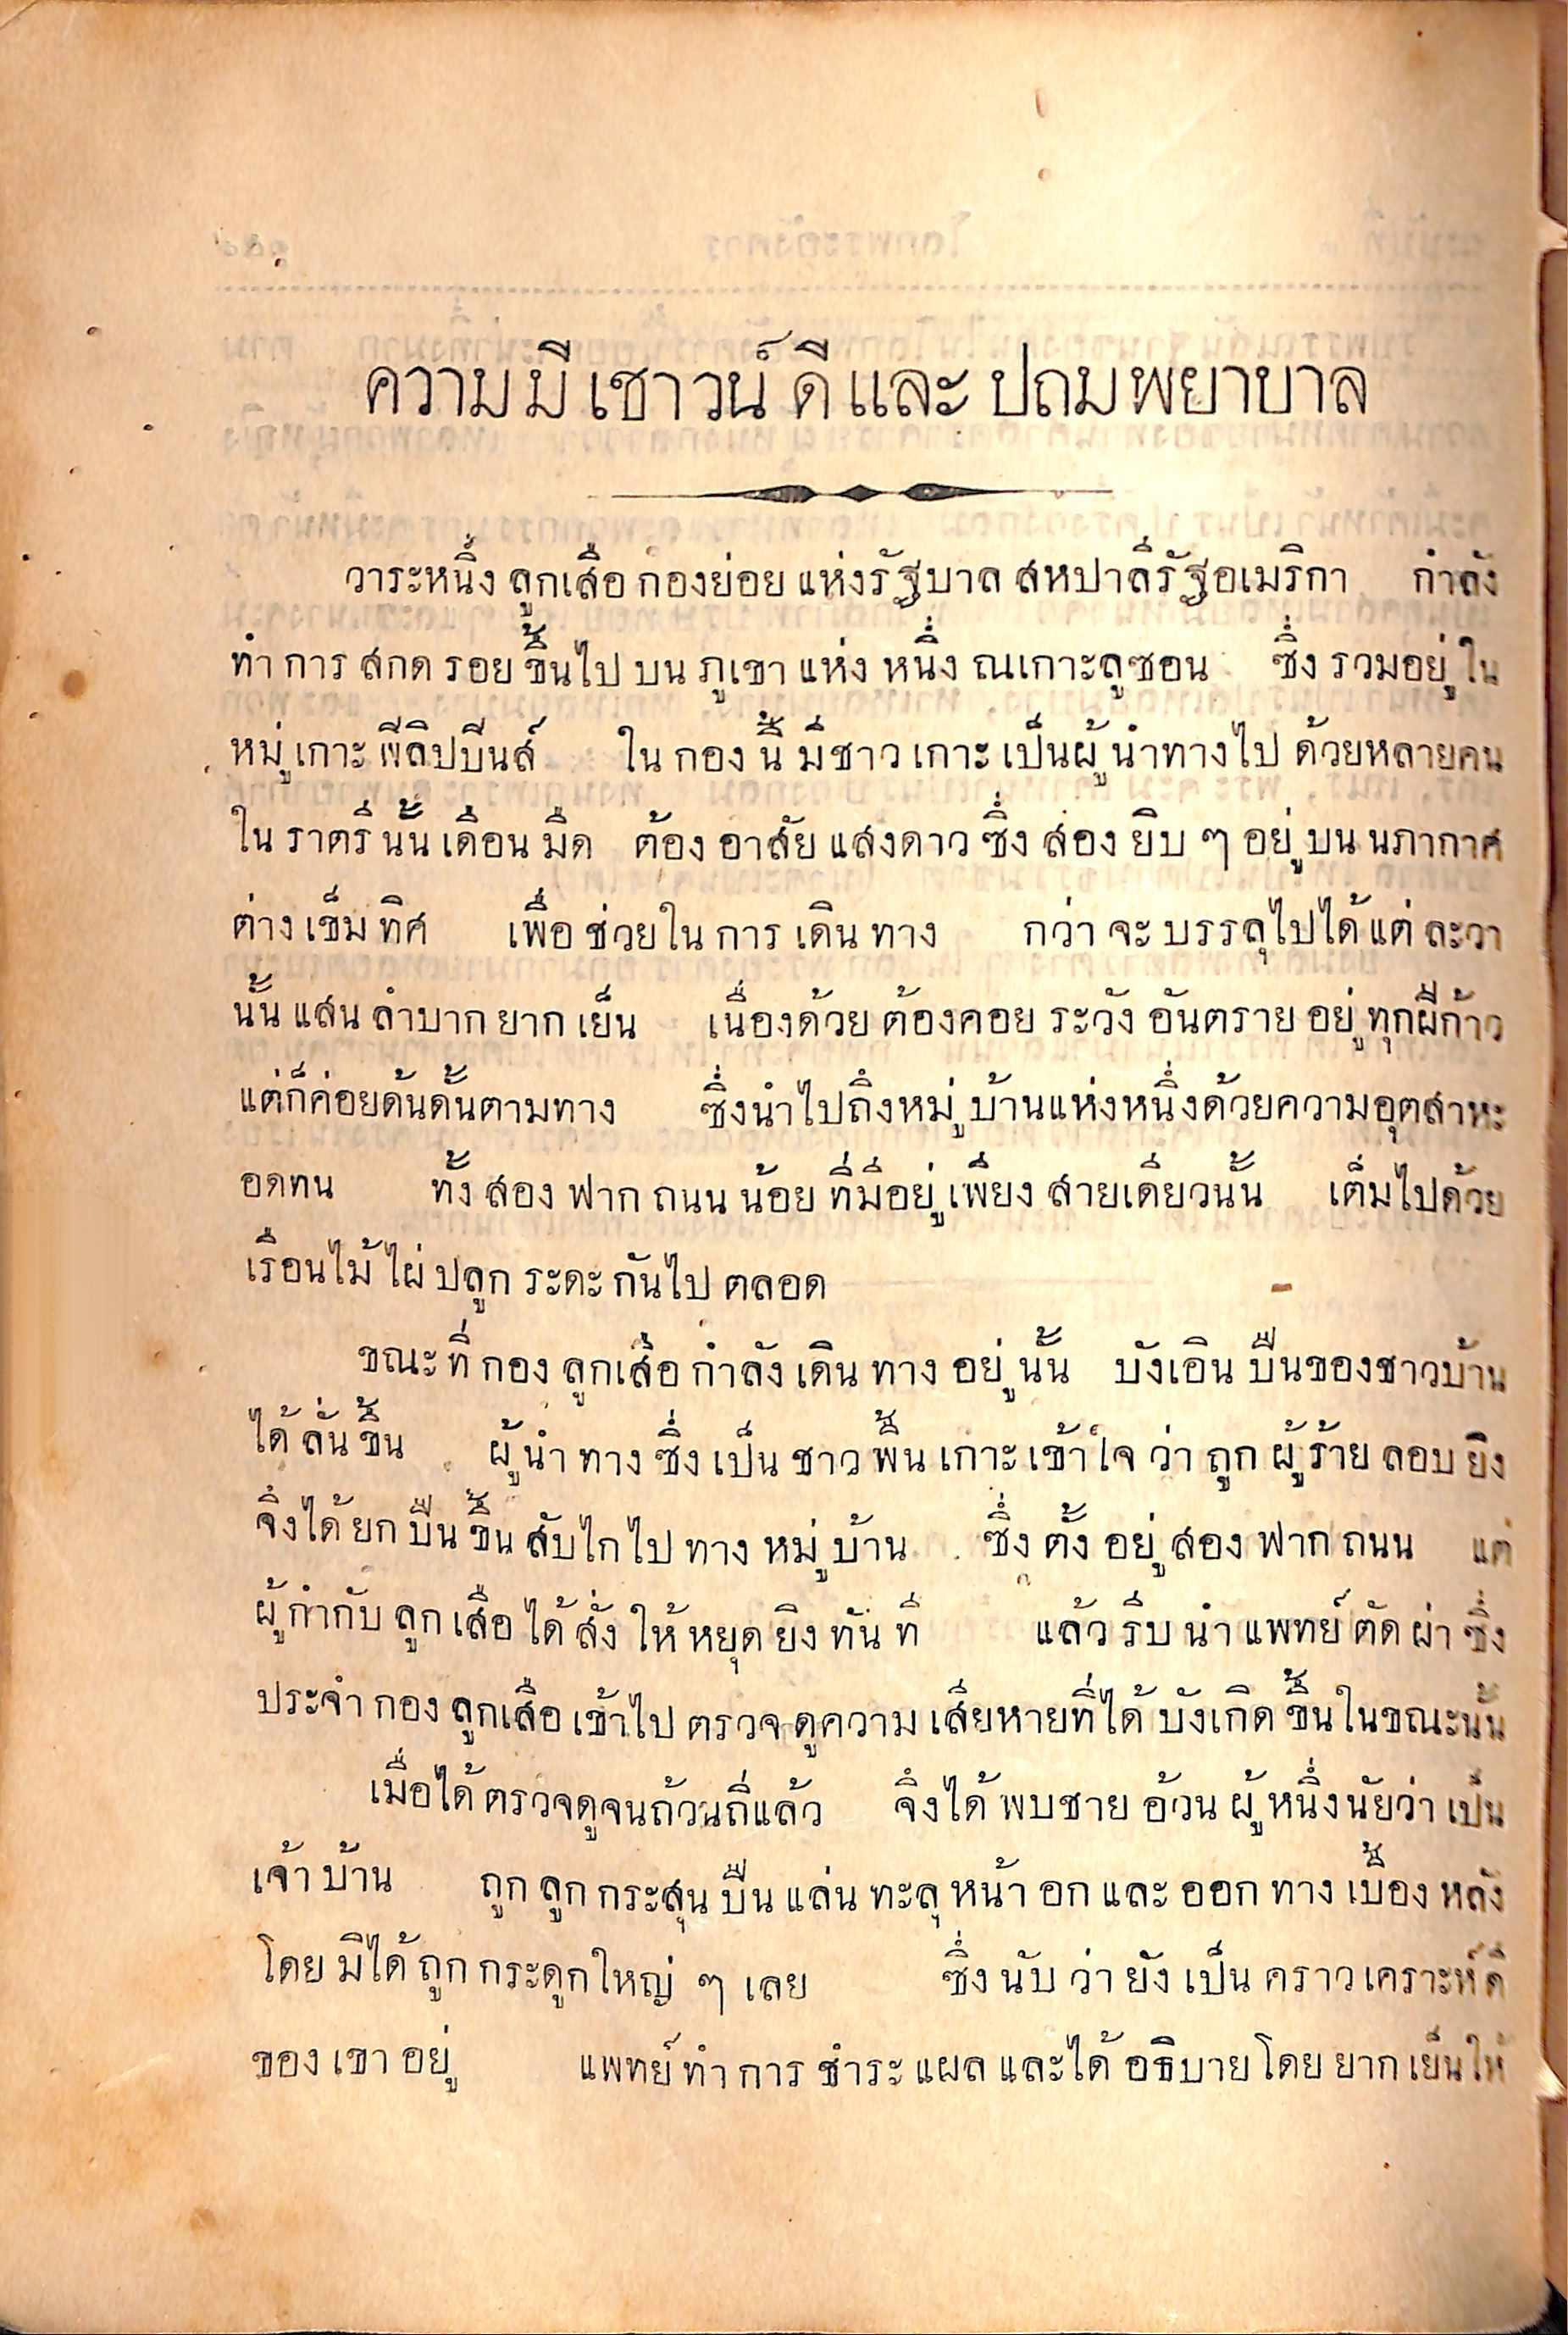 ความมีเชาวน์ดีและปถมพยาบาล
วาระหนึ่ง ลูกเสือกองย่อยแห่งรัฐบาลสหปาลีรัฐอเมริกา กำลัง
ทำการสกดรอยขึ้นไปบนภูเขาแห่งหนึ่งณเกาะลูซอน ซึ่งรวมอยู่ใน
หมู่เกาะฟีลิปปีนส์ ในกองนี้มีชาวเกาะเป็นผู้นำทางไปด้วยหลายคน
ในราตรีนั้นเดือนมืด ต้องอาสัยแสงดาวซึ่งส่องยิบ ๆ อยู่บนนภากาศ
ต่างเข็มทิศ เพื่อช่วยในการเดินทาง กว่าจะบรรลุไปได้แต่ละวา
นั้นแสนลำบากยากเย็น เนื่องด้วยต้องคอยระวังอันตรายอยู่ทุกฝีก้าว
แต่ก็ค่อยด้นดั้นตามทาง ซึ่งนำไปถึงหมู่บ้านแห่งหนึ่งด้วยความอุตสาหะ
อดทน ทั้งสองฟากถนนน้อยที่มีอยู่เพียงสายเดียวนั้น เต็มไปด้วย
เรือนไม้ไผ่ปลูกระดะกันไปตลอด
ขณะที่กองลูกเสือกำลังเดินทางอยู่นั้น บังเอินปืนของชาวบ้าน
ได้ลั่นขึ้น ผู้นำทางซึ่งเป็นชาวพื้นเกาะเข้าใจว่าถูกผู้ร้ายลอบยิง
จึ่งได้ยกปืนขึ้นสับไกไปทางหมู่บ้าน ซึ่งตั้งอยู่สองฟากถนน แต่
ผู้กำกับลูกเสือได้สั่งให้หยุดยิงทันที แล้วรีบนำแพทย์ตัดผ่าซึ่ง
ประจำกองลูกเสือเข้าไปตรวจดูความเสียหายที่ได้บังเกิดขึ้นในขณะนั้น
เมื่อได้ตรวจดูจนถ้วนถี่แล้ว จึงได้พบชายอ้วนผู้หนึ่งนัยว่าเป็น
เจ้าบ้าน ถูกลูกกระสุนปืนแล่นทะลุหน้าอกและออกทางเบื้องหลัง
โดยมิได้ถูกกระดูกใหญ่ ๆ เลย ซึ่งนับว่ายังเป็นคราวเคราะห์ดี
ของเขาอยู่ แพทย์ทำการชำระแผลและได้อธิบายโดยยากเย็นให้